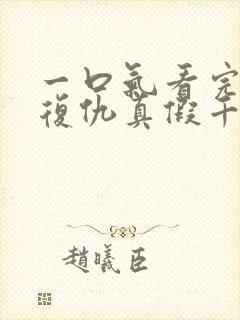 一口氣看完
復仇真假千
趙曦臣